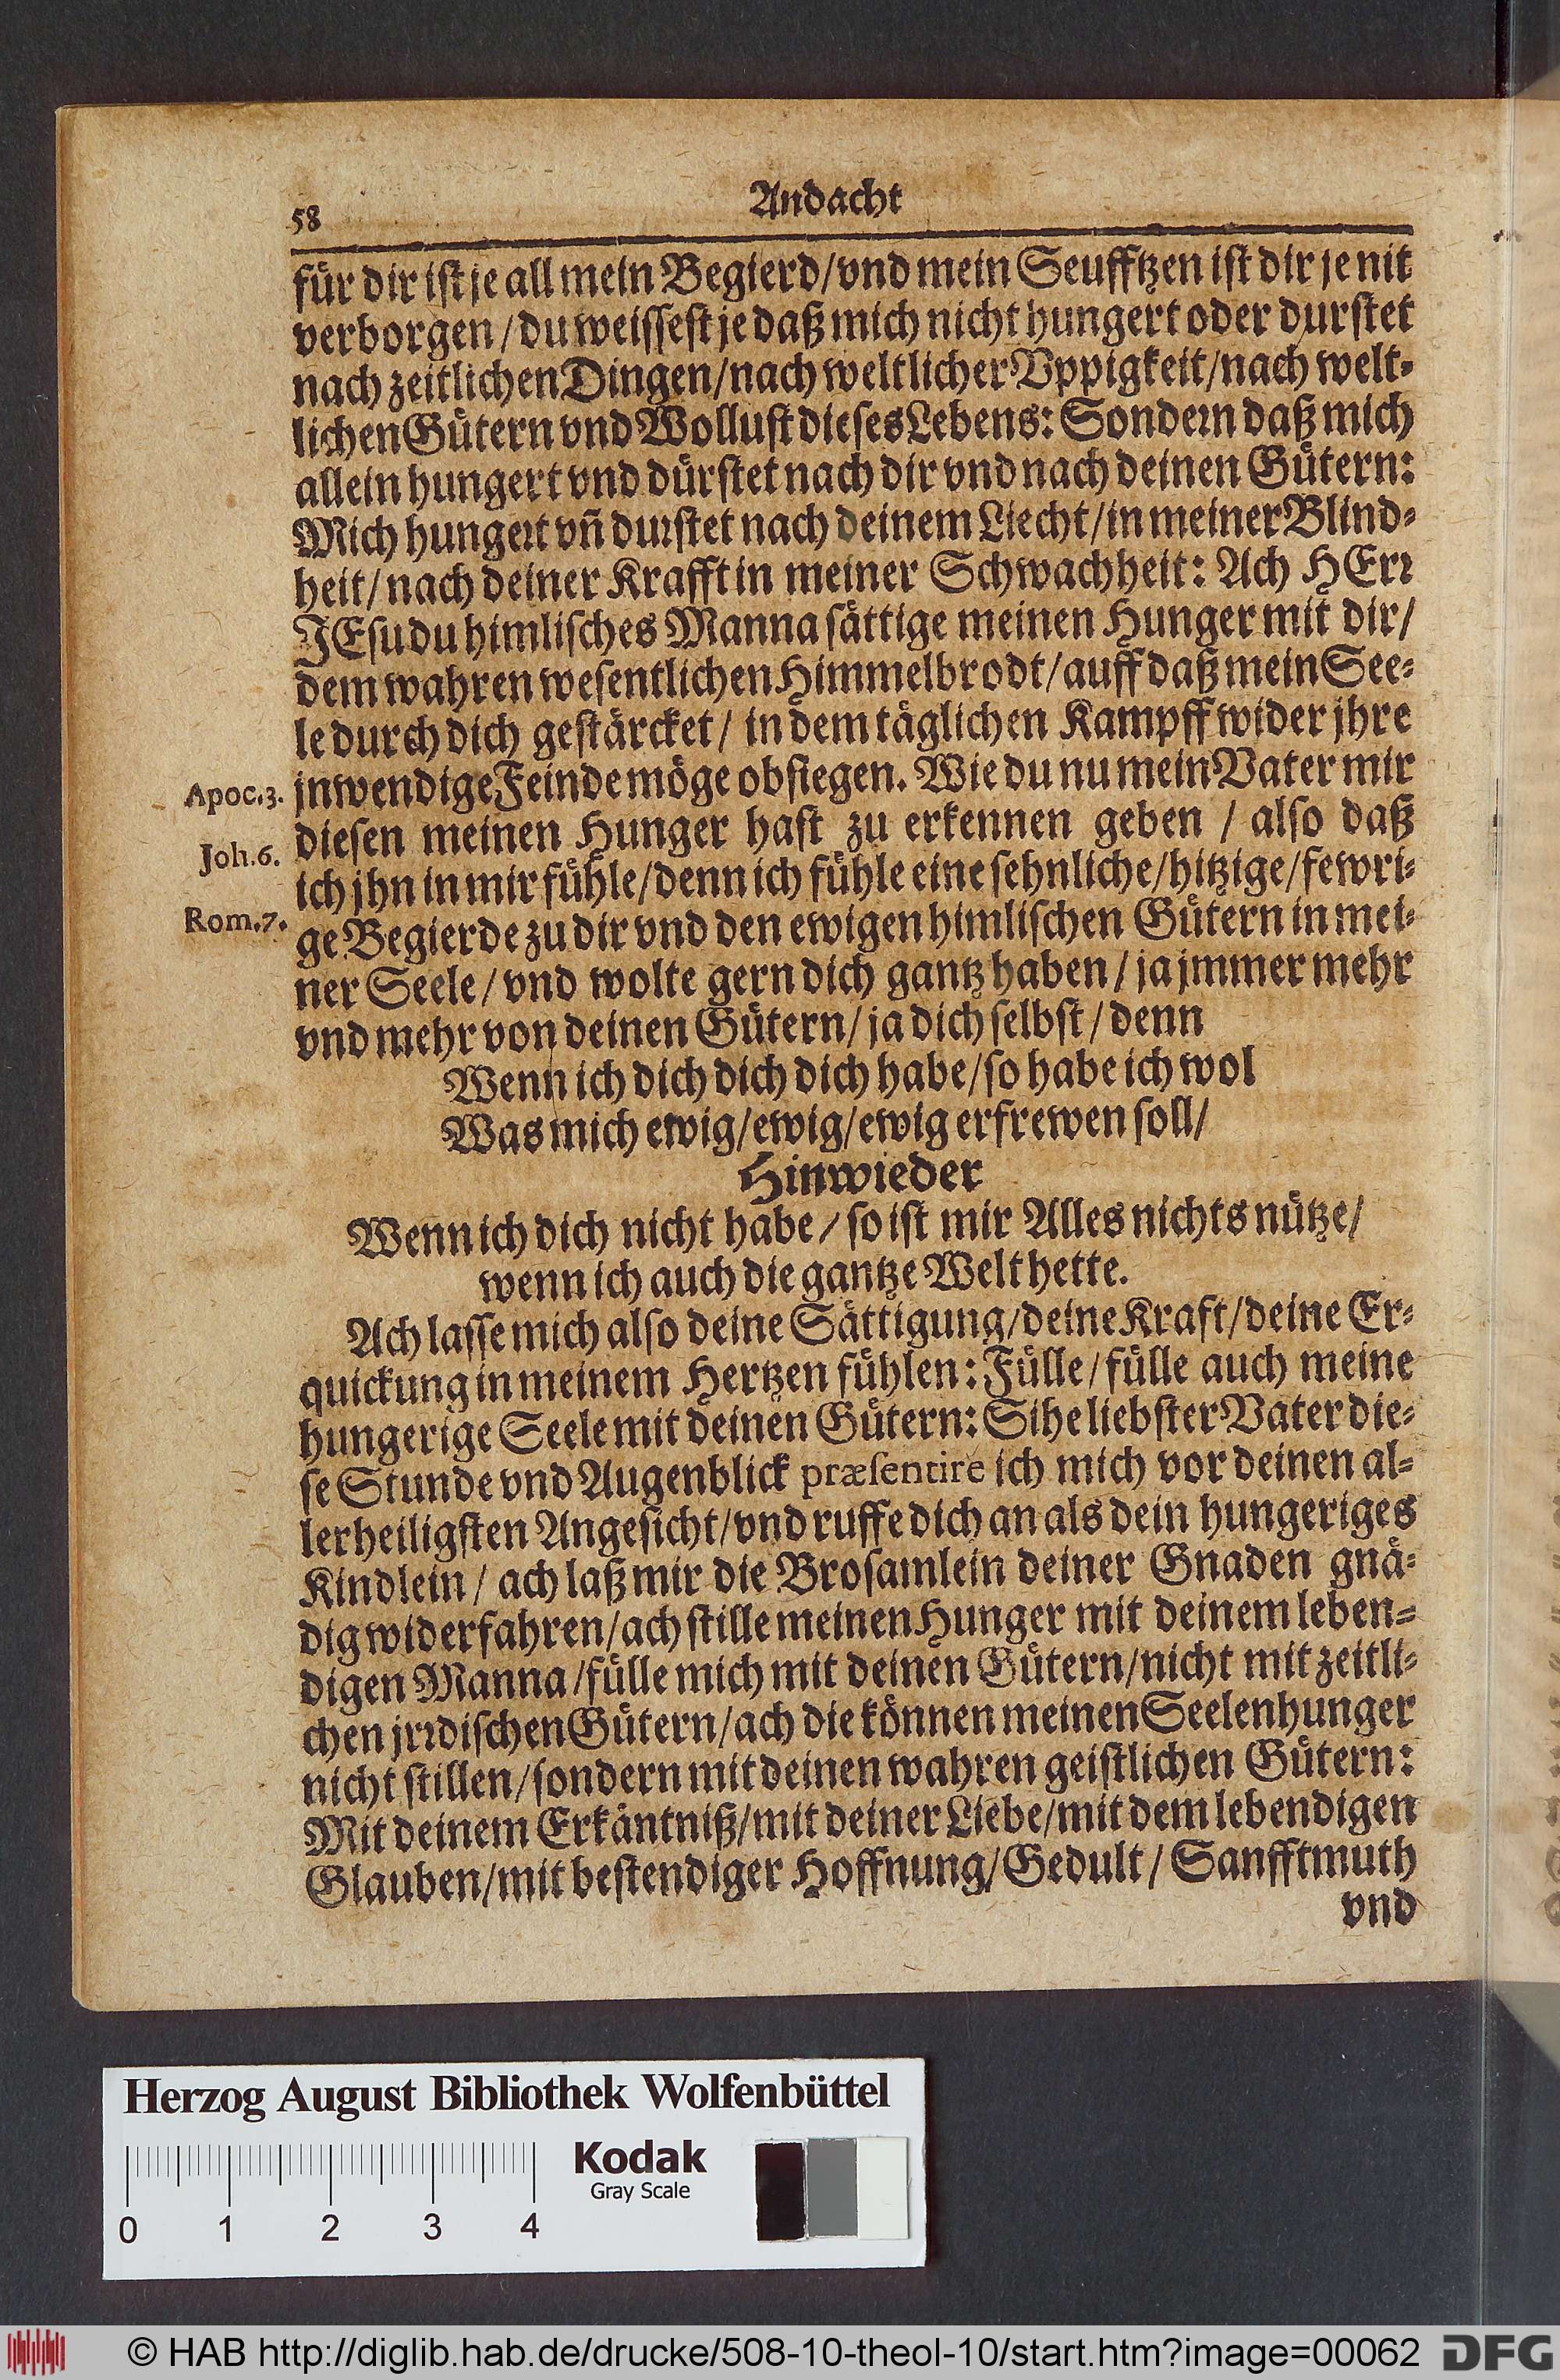 58
Andacht
für dir ist je all mein Begierd/vnd mein Seufftzen ist dir je nit
verborgen/du weissest je daß mich nicht hungert oder durstet
nach zeitlichen Dingen/nach weltlicher Vppigkeit/nach welt-
lichen Gütern vnd Wollust dieses Lebens: Sondern daß mich
allein hungert vnd dürstet nach dir vnd nach deinen Gütern:
Mich hungert vñ durstet nach deinem Liecht/in meiner Blind-
heit/nach deiner Krafft in meiner Schwachheit: Ach HErr
JEsu du himlisches Manna sättige meinen Hunger mit dir/
dem wahren wesentlichen Himmelbrodt/auff daß mein See-
le durch dich gestärcket/ in dem täglichen Kampff wider jhre
Apoc.3. jnwendige Feinde möge obsiegen. Wie du nu mein Vater mir
diesen meinen Hunger hast zu erkennen geben / also daß
Joh.6.
ich jhn in mir fühle/denn ich fühle eine sehnliche/hitzige/fewri-
Rom.7.
ge Begierde zu dir vnd den ewigen himlischen Gütern in mei-
ner Seele/vnd wolte gern dich gantz haben/ja jmmer mehr
vnd mehr von deinen Gütern/ja dich selbst/denn
Wenn ich dich dich dich habe/so habe ich wol
Was mich ewig/ewig/ewig erfrewen soll/
Hinwieder
Wenn ich dich nicht habe/so ist mir Alles nichts nütze/
wenn ich auch die gantze Welt hette.
Ach lasse mich also deine Sättigung/deine Kraft/deine Er-
quickung in meinem Hertzen fühlen: Fülle/fülle auch meine
hungerige Seele mit deinen Gütern: Sihe liebster Vater die-
se Stunde vnd Augenblick præsentire ich mich vor deinen al-
lerheiligsten Angesicht/vnd ruffe dich an als dein hungeriges
Kindlein/ ach laß mir die Brosamlein deiner Gnaden gnä-
dig widerfahren/ach stille meinen Hunger mit deinem leben-
digen Manna/fülle mich mit deinen Gütern/nicht mit zeitli-
chen jrrdischen Gütern/ach die können meinen Seelenhunger
nicht stillen/sondern mit deinen wahren geistlichen Gütern:
Mit deinem Erkäntniß/mit deiner Liebe/mit dem lebendigen
Glauben/mit bestendiger Hoffnung/Gedult/Sanfftmuth
vnd
Herzog August Bibliothek Wolfenbüttel
Kodak
Gray Scale
0 1 2 3 4
© HAB http://diglib.hab.de/drucke/508-10-theol-10/start.htm?image=00062 DFG